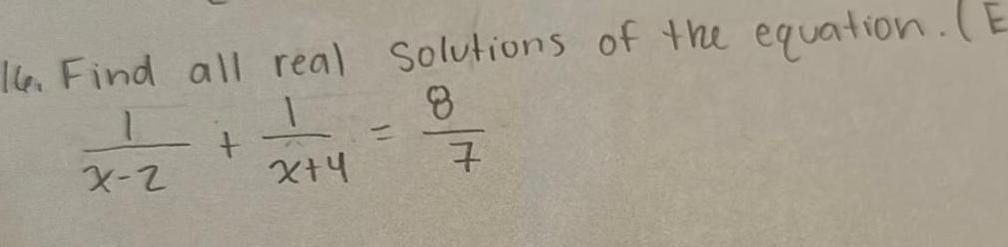 16. Find all real solutions of the equation. (E
1/(x-2) + 1/(x+4) = 8/7